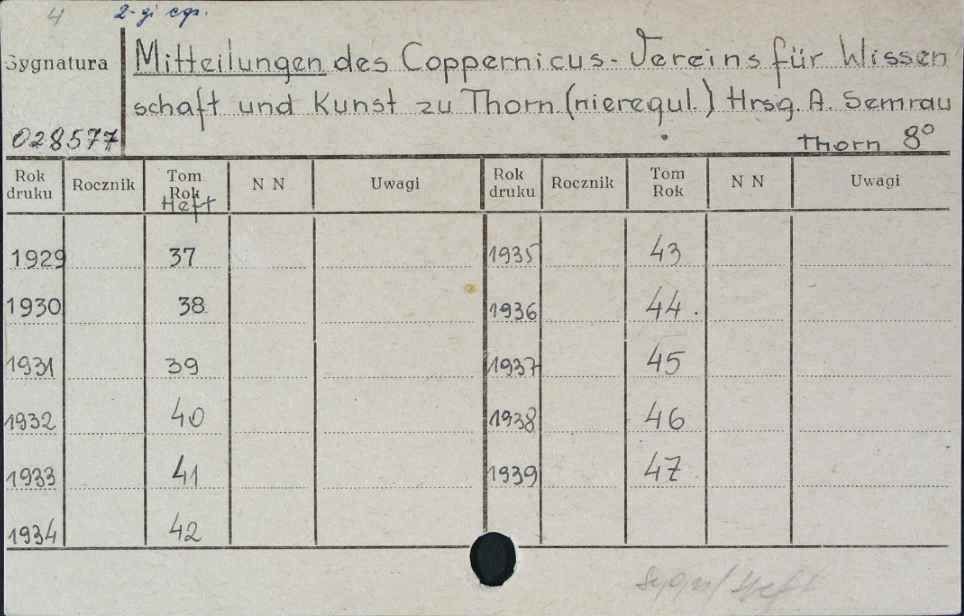 4 2-gi egz.
Sygnatura Mitteilungen des Coppernicus-Vereins für Wissen
schaft und Kunst zu Thorn. (nieregul.) Hrsg. A. Semrau
028577 Thorn 8°
Rok druku Rocznik Tom Rok Heft N N Uwagi Rok druku Rocznik Tom Rok N N Uwagi
1929 37 1935 43
1930 38 1936 44.
1931 39 1937 45
1932 40 1938 46
1933 41 1939 47
1934 42